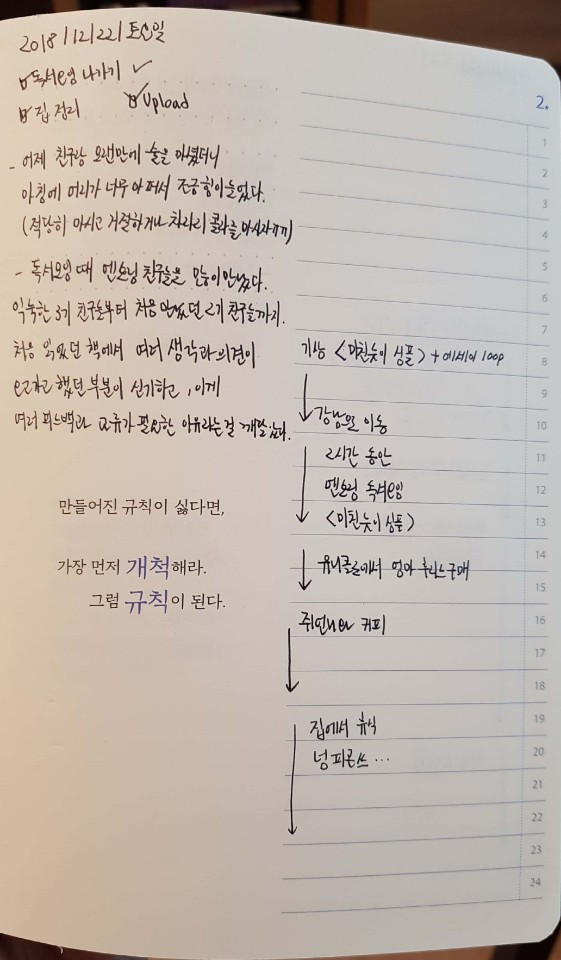 2018/12/22/토요일
☑독서모임 나가기 ✓
☑집 정리 ☑Upload
- 어제 친구랑 오랜만에 술을 마셨더니
아침에 머리가 너무 아파서 조금 힘이 들었다.
(적당히 마시고 거절하거나 차라리 콜라를 마시자ㅋㅋ)
- 독서모임 때 멘토링 친구들을 많이 만났다.
익숙한 3기 친구들부터 처음 만났던 2기 친구들까지.
처음 읽었던 책에서 여러 생각과 의견이
오고가고 했던 부분이 신기하고, 이게
여러 피드백과 교류가 필요한 이유라는걸 깨달았다.
만들어진 규칙이 싫다면,
가장 먼저 개척해라.
그럼 규칙이 된다.
2.
1
2
3
4
5
6
7
기상 <미친듯이 심플> + 에세이 100p 8
9
강남으로 이동 10
2시간 동안 11
멘토링 독서모임 12
<미친듯이 심플> 13
14
유니클로에서 엄마 후리스 구매
15
커피 16
17
18
집에서 휴식 19
넘 피곤쓰... 20
21
22
23
24